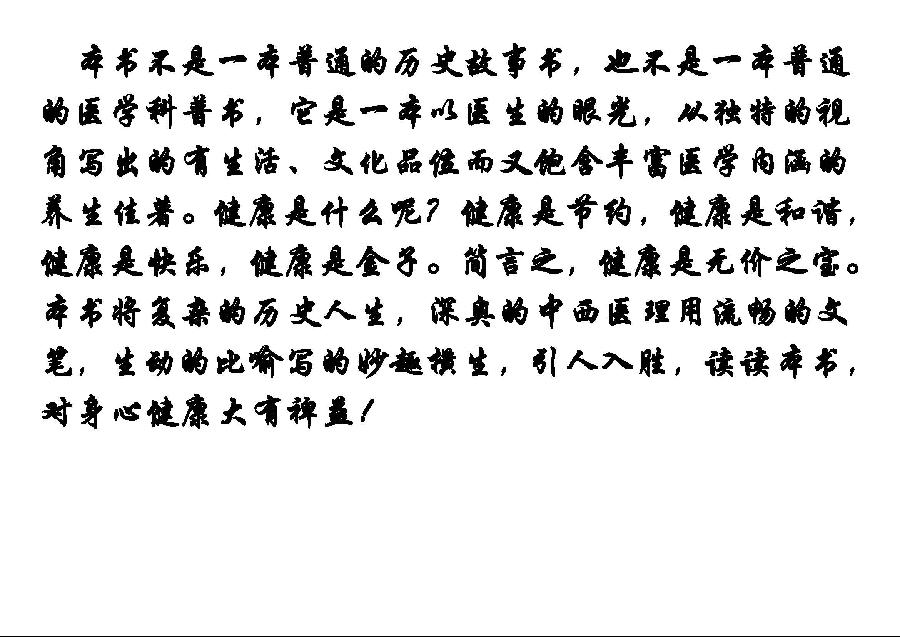 本书不是一本普通的历史故事书，也不是一本普通
的医学科普书，它是一本以医生的眼光，从独特的视
角写出的有生活、文化品位而又饱含丰富医学内涵的
养生佳著。健康是什么呢？健康是节约，健康是和谐，
健康是快乐，健康是金子。简言之，健康是无价之宝。
本书将复杂的历史人生，深奥的中西医理用流畅的文
笔，生动的比喻写的妙趣横生，引人入胜，读读本书，
对身心健康大有裨益！